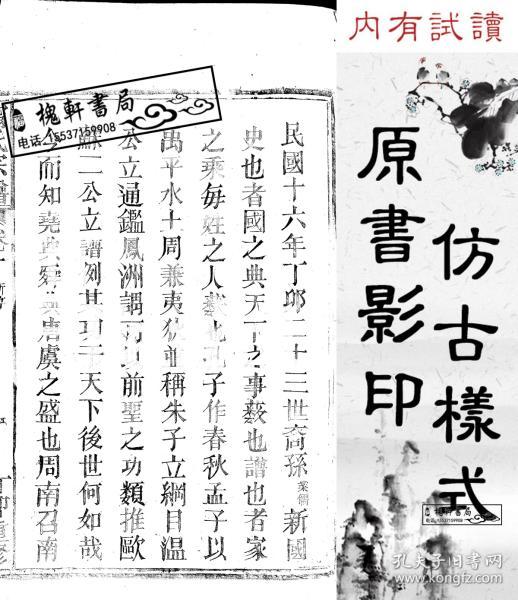 內有試讀
仿古樣式
原書影印
槐軒書局
电话:15537159908
民國十六年丁卯二十三世裔孫 新國
史也者國之典天下之事薮也譜也者家
之乘每姓之人 也孔子作春秋孟子以
禹平水土周兼夷狄並稱朱子立綱目溫
公立通鑑鳳洲謂可以前聖之功類推歐
蘇二公立譜列其功于天下後世何如哉
而知堯典舜典唐虞之盛也周南召南
槐軒書局
电话:15537159908
孔夫子旧书网
www.kongfz.com